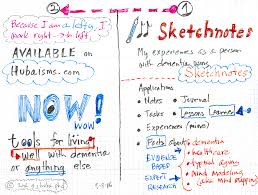 1
Sketchnotes
My experiences as a person
with dementia using
Sketchnotes
Applications
Notes • Journal
Tasks • Lessons Learned
Experiences (mine)
Facts about dementia
EVIDENCE BASED
EXPERT RESEARCH
healthcare
typical aging
mind modeling
(aka mind mapping)
2
Because I am a lefty, I
work right → to left.
AVAILABLE on
Hubaisms.com
NOW!
wow!
tools for living
well with dementia
or anything else